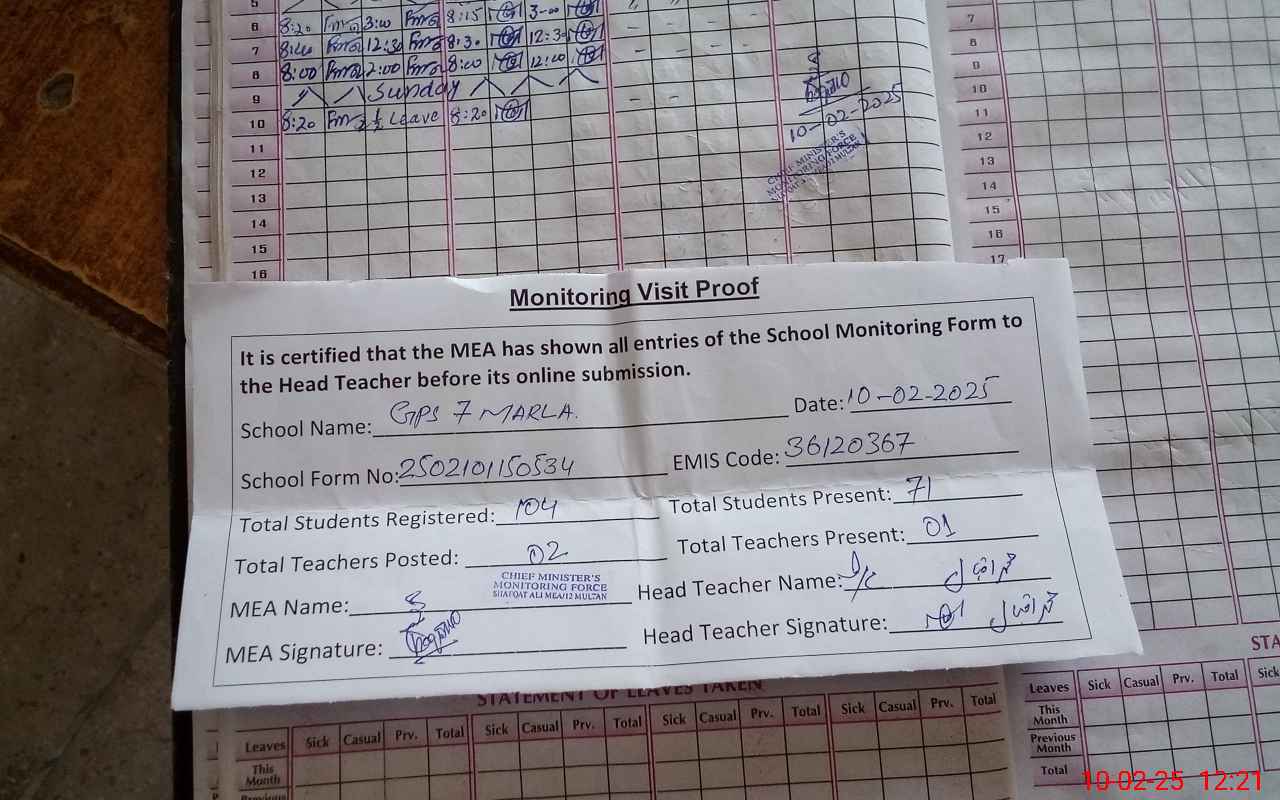 5
6 8:20 3:00 8:15 3-00
7 8:40 12:30 8:30 12:30
8 8:00 2:00 8:00 12:00
9 Sunday
10 8:20 ½ Leave 8:20
11
12
13
14
15
16
10-02-2025
CHIEF MINISTER'S
MONITORING FORCE
7
8
9
10
11
12
13
14
15
16
17
Monitoring Visit Proof
It is certified that the MEA has shown all entries of the School Monitoring Form to
the Head Teacher before its online submission.
School Name: GPS 7 MARLA. Date: 10-02-2025
School Form No: 2502101150534 EMIS Code: 36120367
Total Students Registered: 104 Total Students Present: 71
Total Teachers Posted: 02 Total Teachers Present: 01
MEA Name: CHIEF MINISTER'S
MONITORING FORCE
SHAFQAT ALI MEA/12 MULTAN
Head Teacher Name: I/C
MEA Signature: Head Teacher Signature:
STATEMENT OF LEAVES TAKEN
Leaves Sick Casual Prv. Total Sick Casual Prv. Total Sick Casual Prv. Total Sick Casual Prv. Total
This Month
Previous
STA
Leaves Sick Casual Prv. Total Sick
This Month
Previous Month
Total
10-02-25 12:21